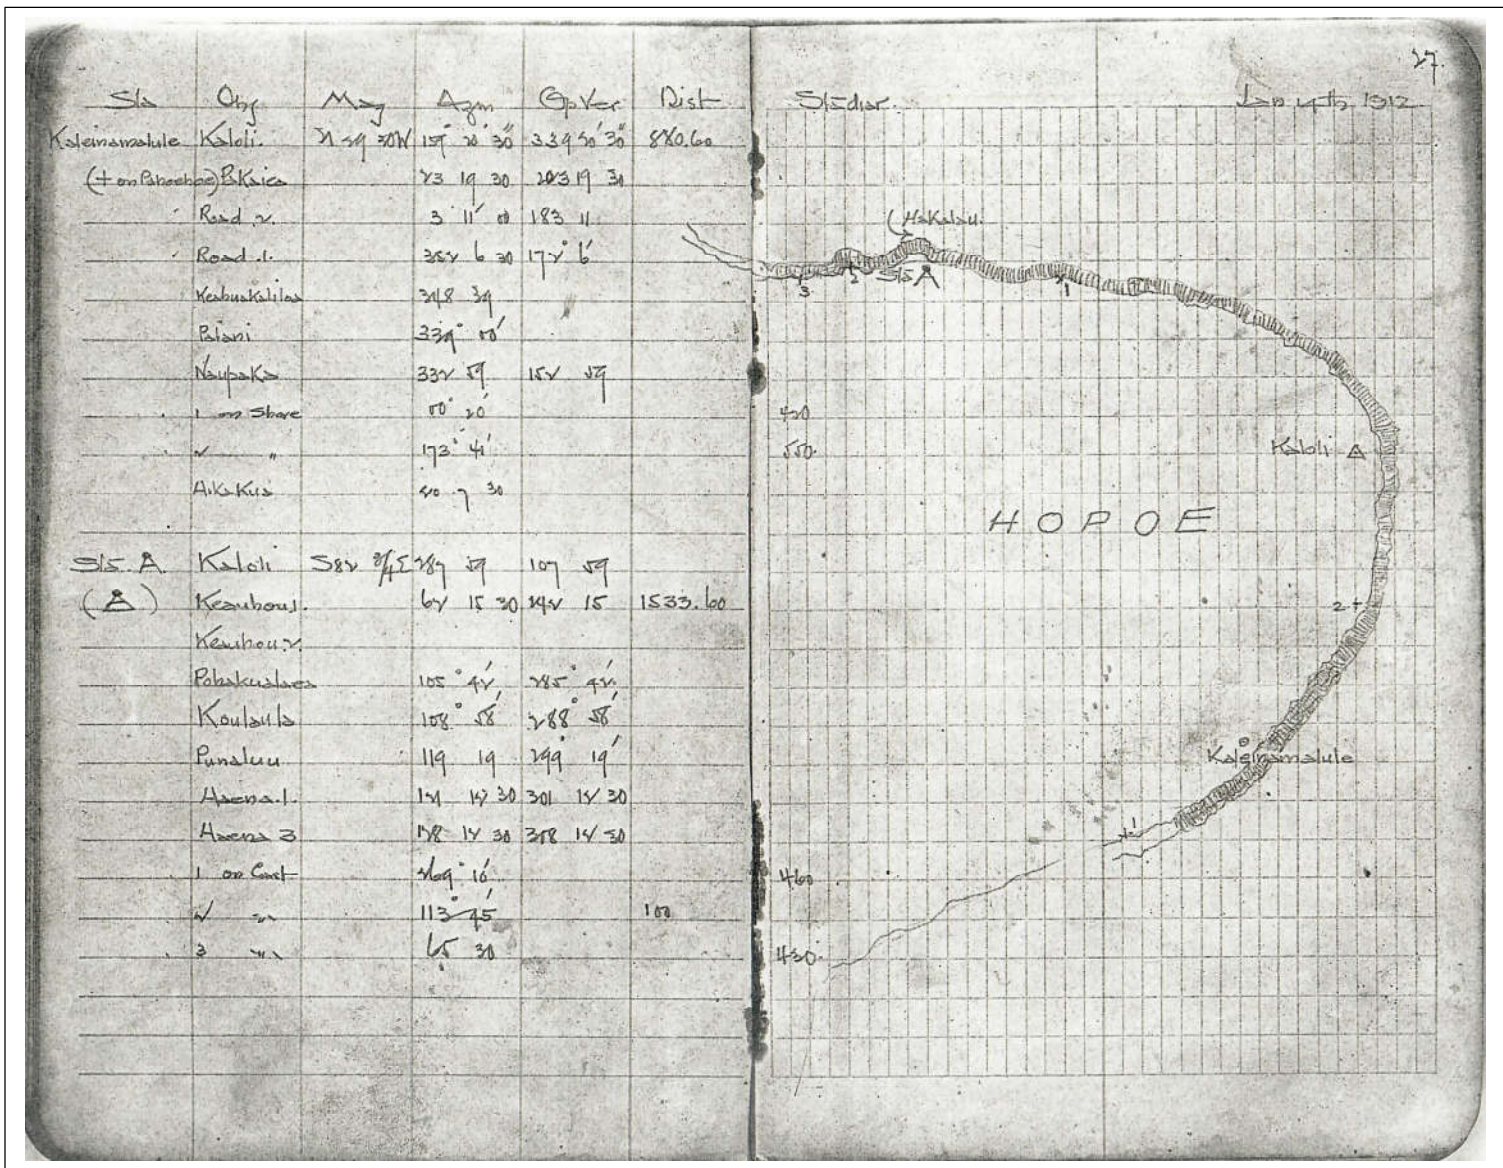 27.
Sta Obj Mag Azm Op Ver Dist
Kaleinamalule Kaloli. N 29 30W 159° 20' 30" 339 20' 30" 880.60
(+ on Pahoehoe) 23 19 30 203 19 30
Road 2. 3 11' 00 183 11
Road .1. 352 6 30 172° 6'
348 39
Palani 339° 00'
Naupaka 332 59 152 59
1 on Shore 00° 20'
2 " 173° 41'
Aikakua 40 7 30
Sta. A. Kaloli S82 3/4 E 287 59 107 59
(A) Keauhou 1. 62 15 30 242 15 1533.60
Keauhou 2.
Pohakualaea 105° 42' 285° 42'
Koulaula 108° 58' 288° 58'
Punaluu 119 19 299° 19'
Haena .1. 121 12 30 301 12 30
Haena 3 128 12 30 308 12 30
1 on Cost 269° 16'
2 " 113° 45' 100
3 " 65 30
Stadiar. Jan 4th 1912
Hakalau.
3 2 Sta A 1
420
550.
Kaloli
HOPOE
2+
Kaleinamalule
1
460
430.